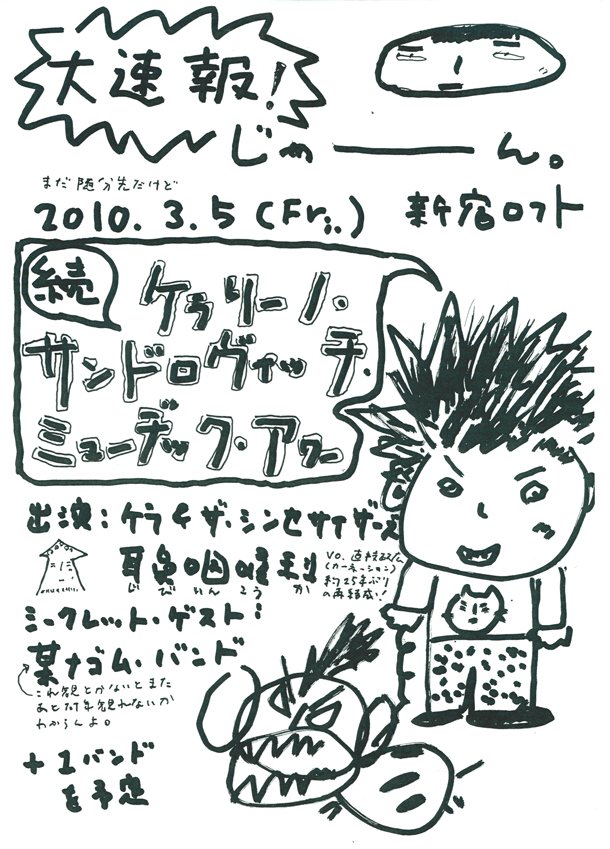 大速報!
じゃーーん。
まだ随分先だけど
2010.3.5(Fri.)
新宿ロフト
続
ケラリーノ・
サンドロヴィッチ・
ミューヂック・アワー
出演:ケラ&ザ・シンセサイザーズ
耳鼻咽喉科
じびいんこうか
vo.直枝政広
(カーネーション)
約25年ぶり
の再結成!
シークレット・ゲスト:
某ナゴム・バンド
これ観とかないとまた
あと何年観れないか
わからんよ。
+1バンド
を予定